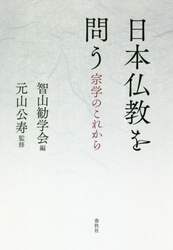 日本仏教を
問う
宗学のこれから
智山勧学会 編
元山公寿 監修
春秋社